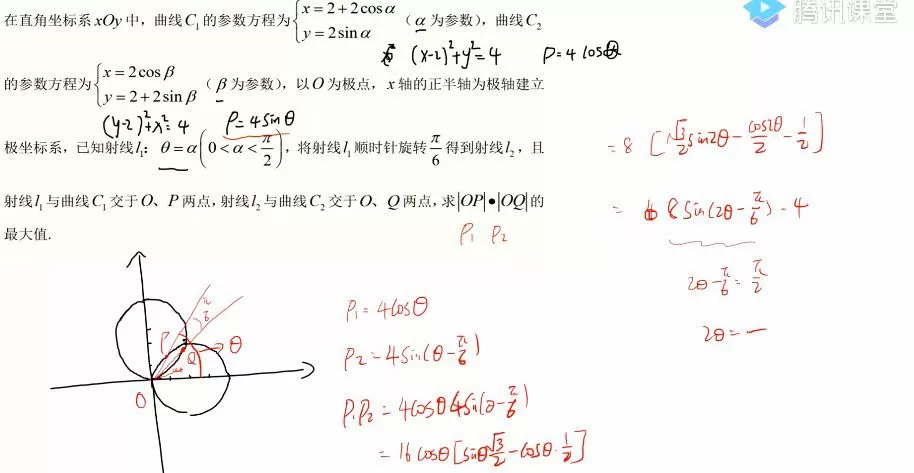 腾讯课堂
在直角坐标系xOy中，曲线C₁的参数方程为{x=2+2cosα y=2sinα（α为参数），曲线C₂
(x-2)²+y²=4 ρ=4cosθ
的参数方程为{x=2cosβ y=2+2sinβ（β为参数），以O为极点，x轴的正半轴为极轴建立
(y-2)²+x²=4 ρ=4sinθ
极坐标系，已知射线l₁：θ=α(0<α<π/2)，将射线l₁顺时针旋转π/6得到射线l₂，且
射线l₁与曲线C₁交于O、P两点，射线l₂与曲线C₂交于O、Q两点，求|OP|•|OQ|的
最大值.
ρ₁ ρ₂
=8[√3/2 sin2θ-cos2θ/2-1/2]
=8sin(2θ-π/6)-4
2θ-π/6=π/2
2θ=—
P
Q
θ
O
π/6
ρ₁=4cosθ
ρ₂=4sin(θ-π/6)
ρ₁ρ₂=4cosθ4sin(θ-π/6)
=16cosθ[sinθ√3/2-cosθ·1/2]